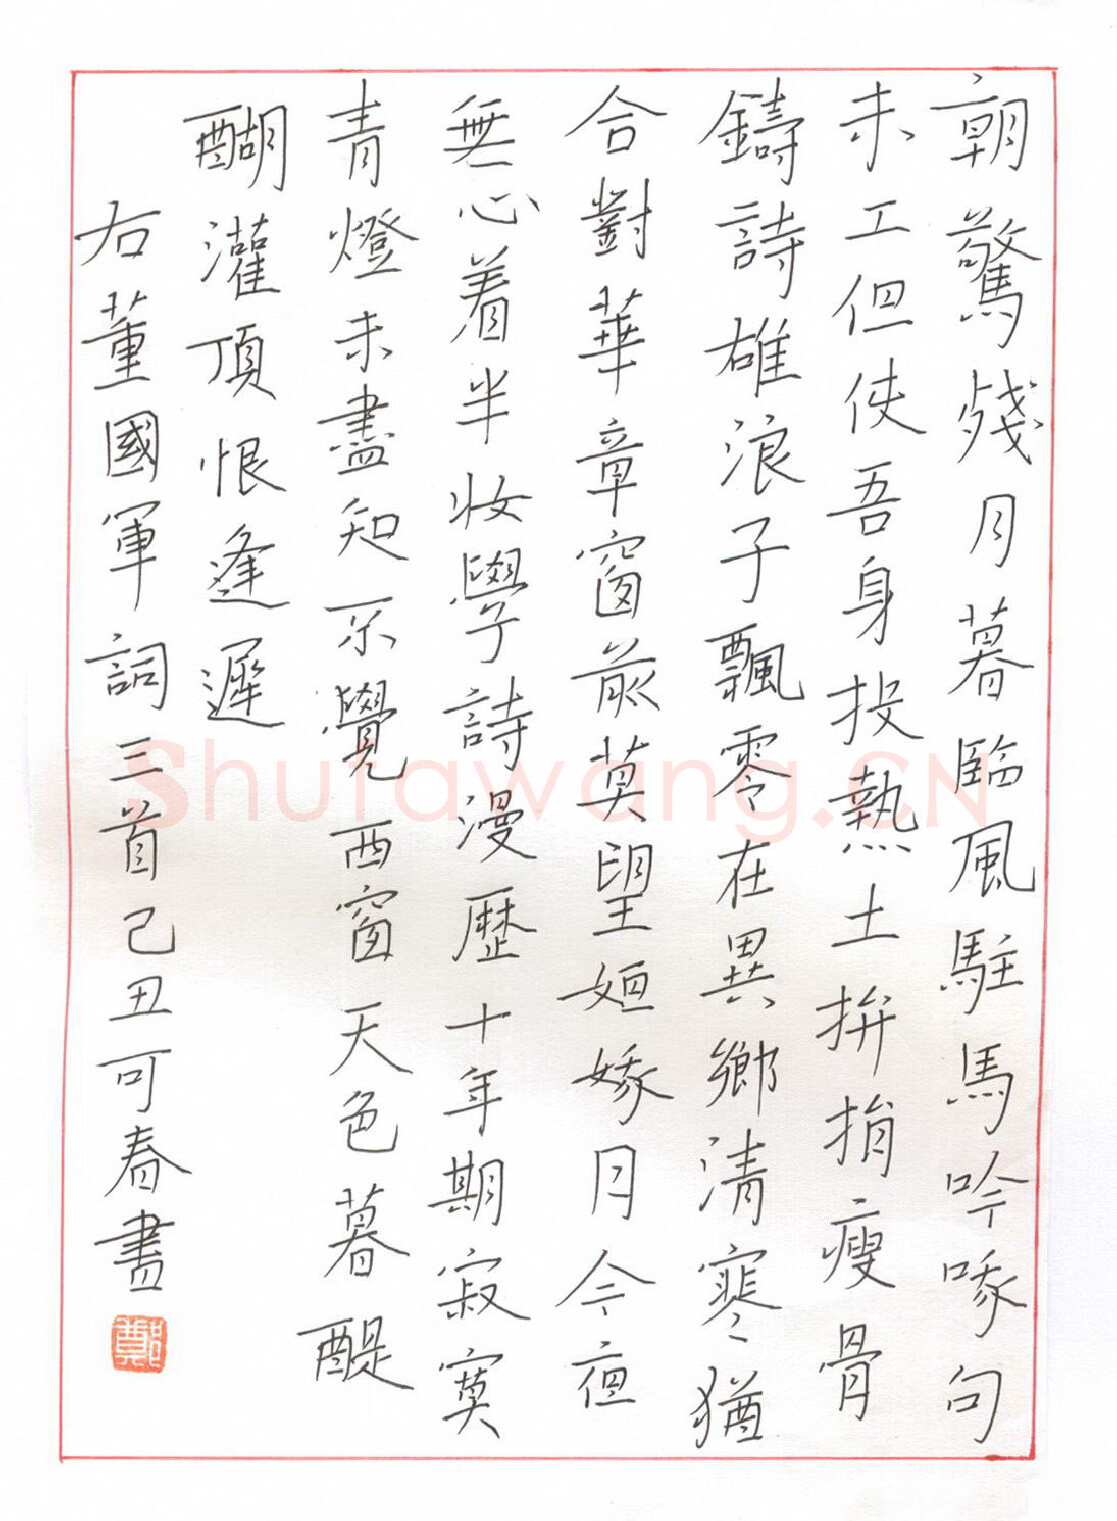 朝驚殘月暮臨風駐馬吟啄句
未工但使吾身投熱土拚捐瘦骨
鑄詩雄浪子飄零在異鄉清寒猶
合對華章窗前莫望姮嫁月今夜
無心着半妝學詩漫歷十年期寂寞
青燈未盡知不覺西窗天色暮醍
醐灌頂恨逢遲
右董國軍詞三首己丑可春書
鄭
Shufawang.CN